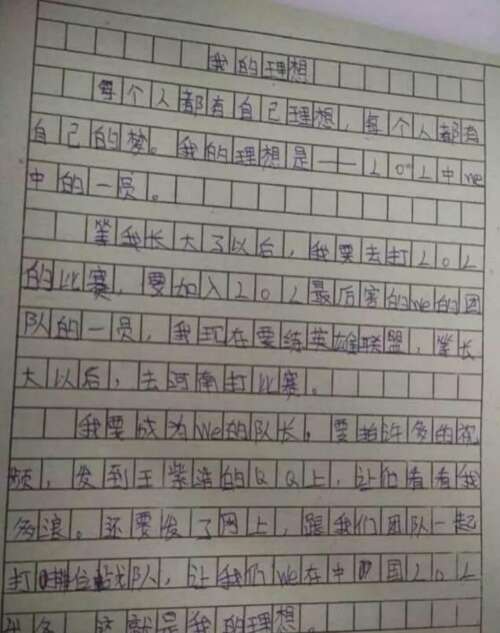 我的理想
每个人都有自己理想，每个人都有
自己的梦。我的理想是——LOL中we
中的一员。
等我长大了以后，我要去打LOL
的比赛，要加入LOL最后赛的we的团
队的一员，我现在要练英雄联盟，等长
大以后，去河南打比赛。
我要成为we的队长，要拍许多的视
频，发到王紫浩的QQ上，让他看看我
多浪。还要发了网上，跟我们团队一起
打排位战队，让我们we在中国LOL
这就是我的理想。